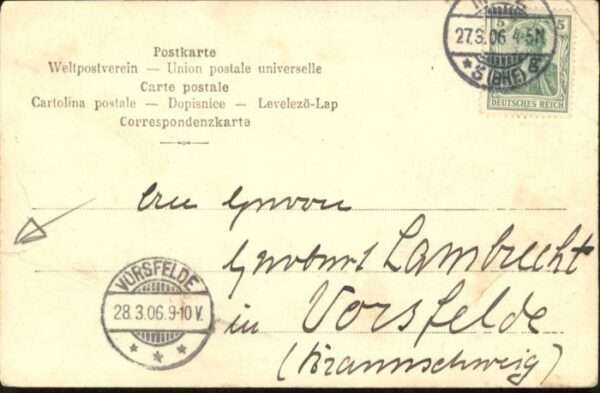 Postkarte
Weltpostverein — Union postale universelle
Carte postale
Cartolina postale — Dopisnice — Levelező-Lap
Correspondenzkarte
27.3.06 4-5N
* 5 (BHF) 8
5 5
DEUTSCHES REICH
Lambrecht
VORSFELDE
28.3.06.9-10 V.
* * *
in Vorsfelde
(Braunschweig)